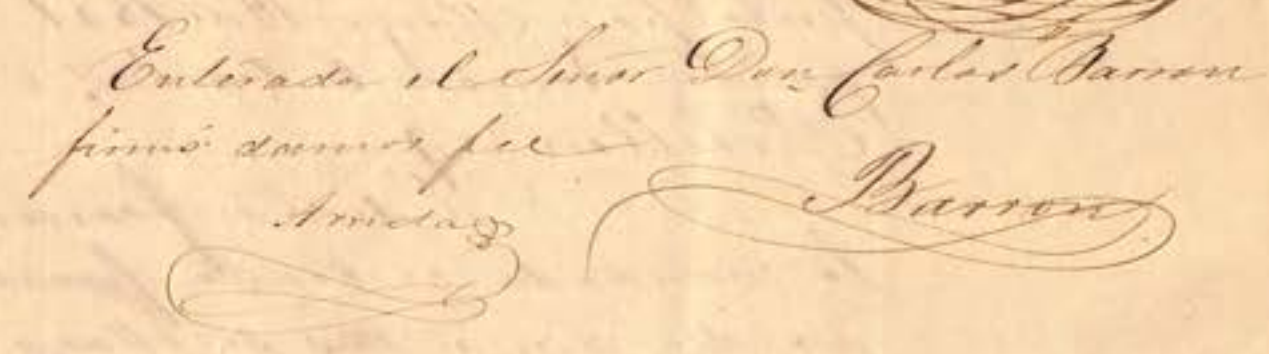 Enterado el Señor Don Carlos Barron
firmó damos fee
Barron